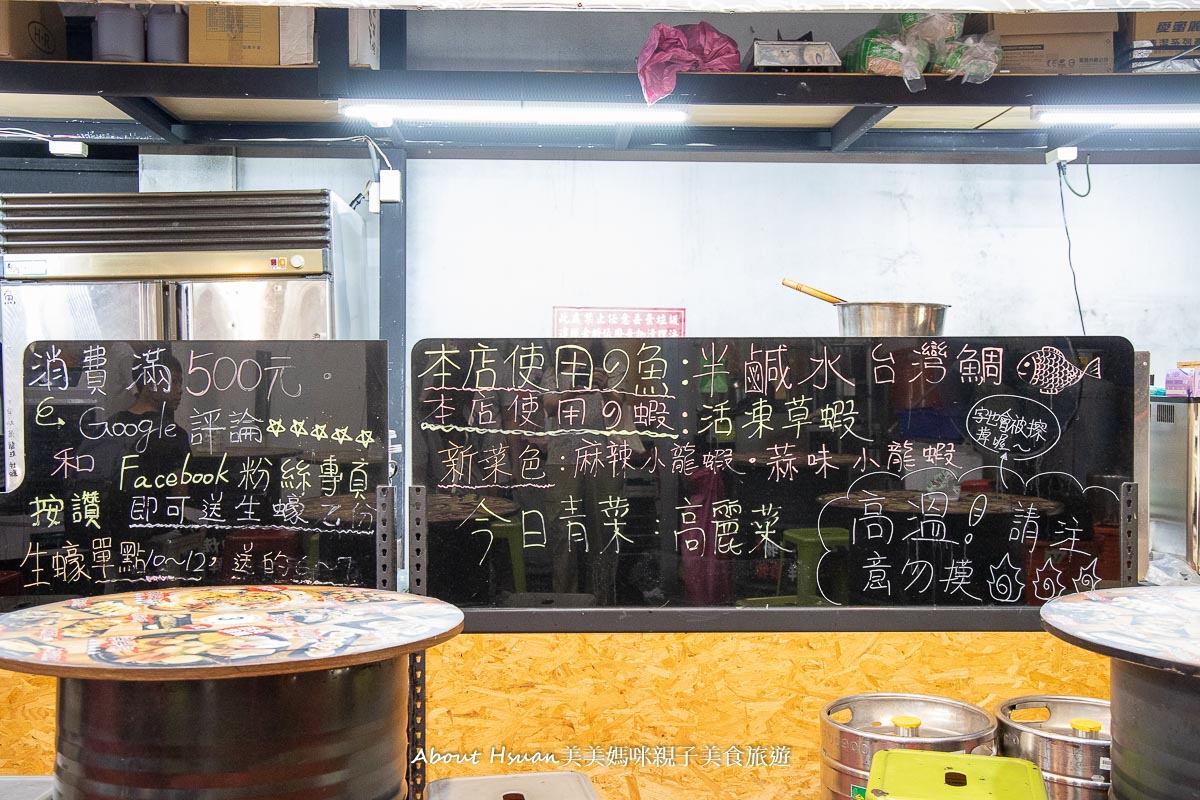 消費滿500元。
Google評論☆☆☆☆☆
和 Facebook粉絲專頁
按讚 即可送生蠔乙份
生蠔單點10~12, 送的6~7
本店使用の魚:半鹹水台灣鯛
本店使用の蝦:活凍草蝦
新菜色:麻辣小龍蝦・蒜味小龍蝦
今日青菜:高麗菜
字也會被擦掉喔~
高溫!請注
意勿摸
此處禁止任意丟棄垃圾
About Hsuan美美媽咪親子美食旅遊